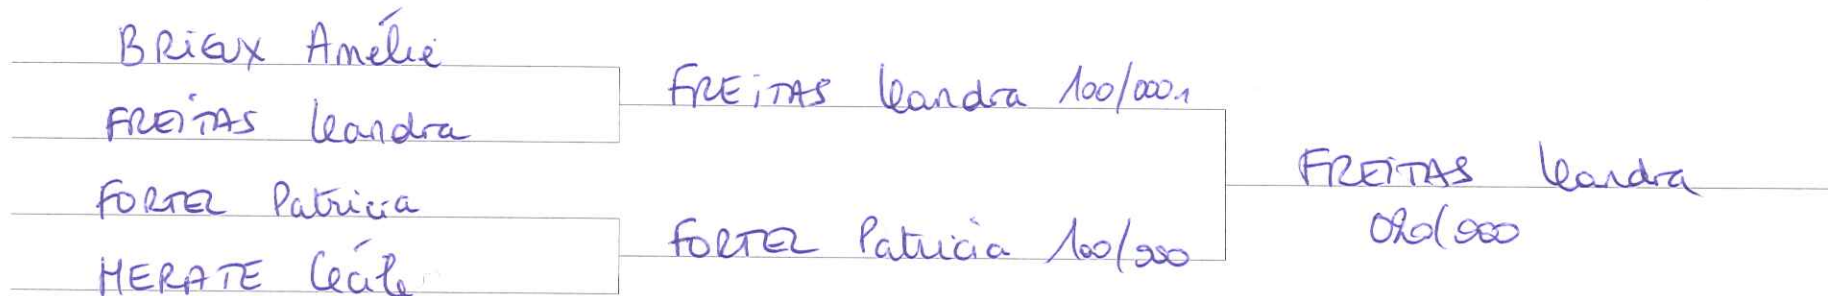 BRIEUX Amélie
FREITAS Leandra
FORTEL Patricia
MERATE Cécile
FREITAS Leandra 100/000.1
FORTEL Patricia 100/000
FREITAS Leandra
020/000